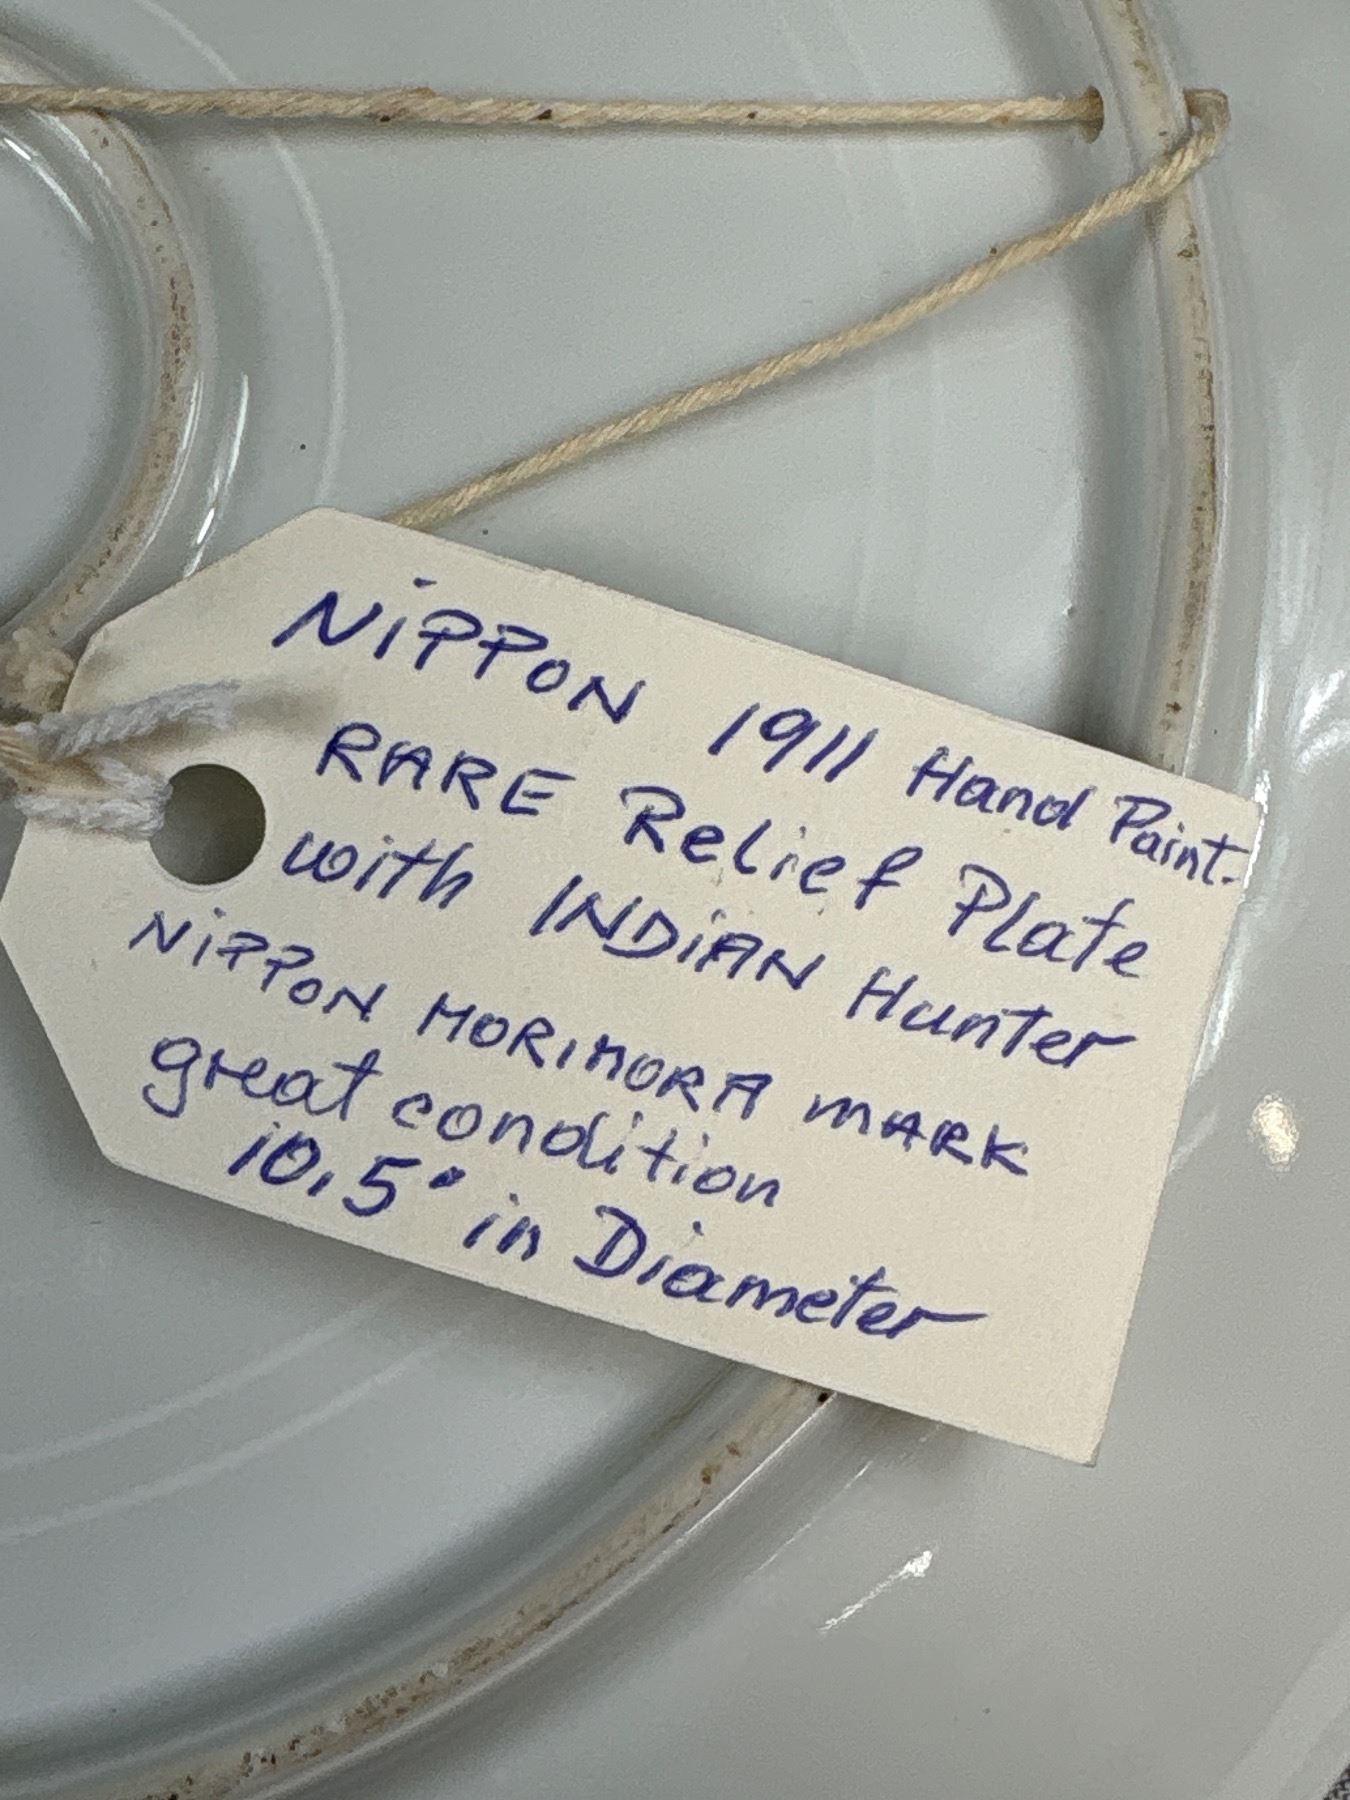 NiPPON 1911 Hand Paint.
RARE Relief Plate
with INDiAN Hunter
NiPPON MORIMORA MARK
great condition
10.5" in Diameter